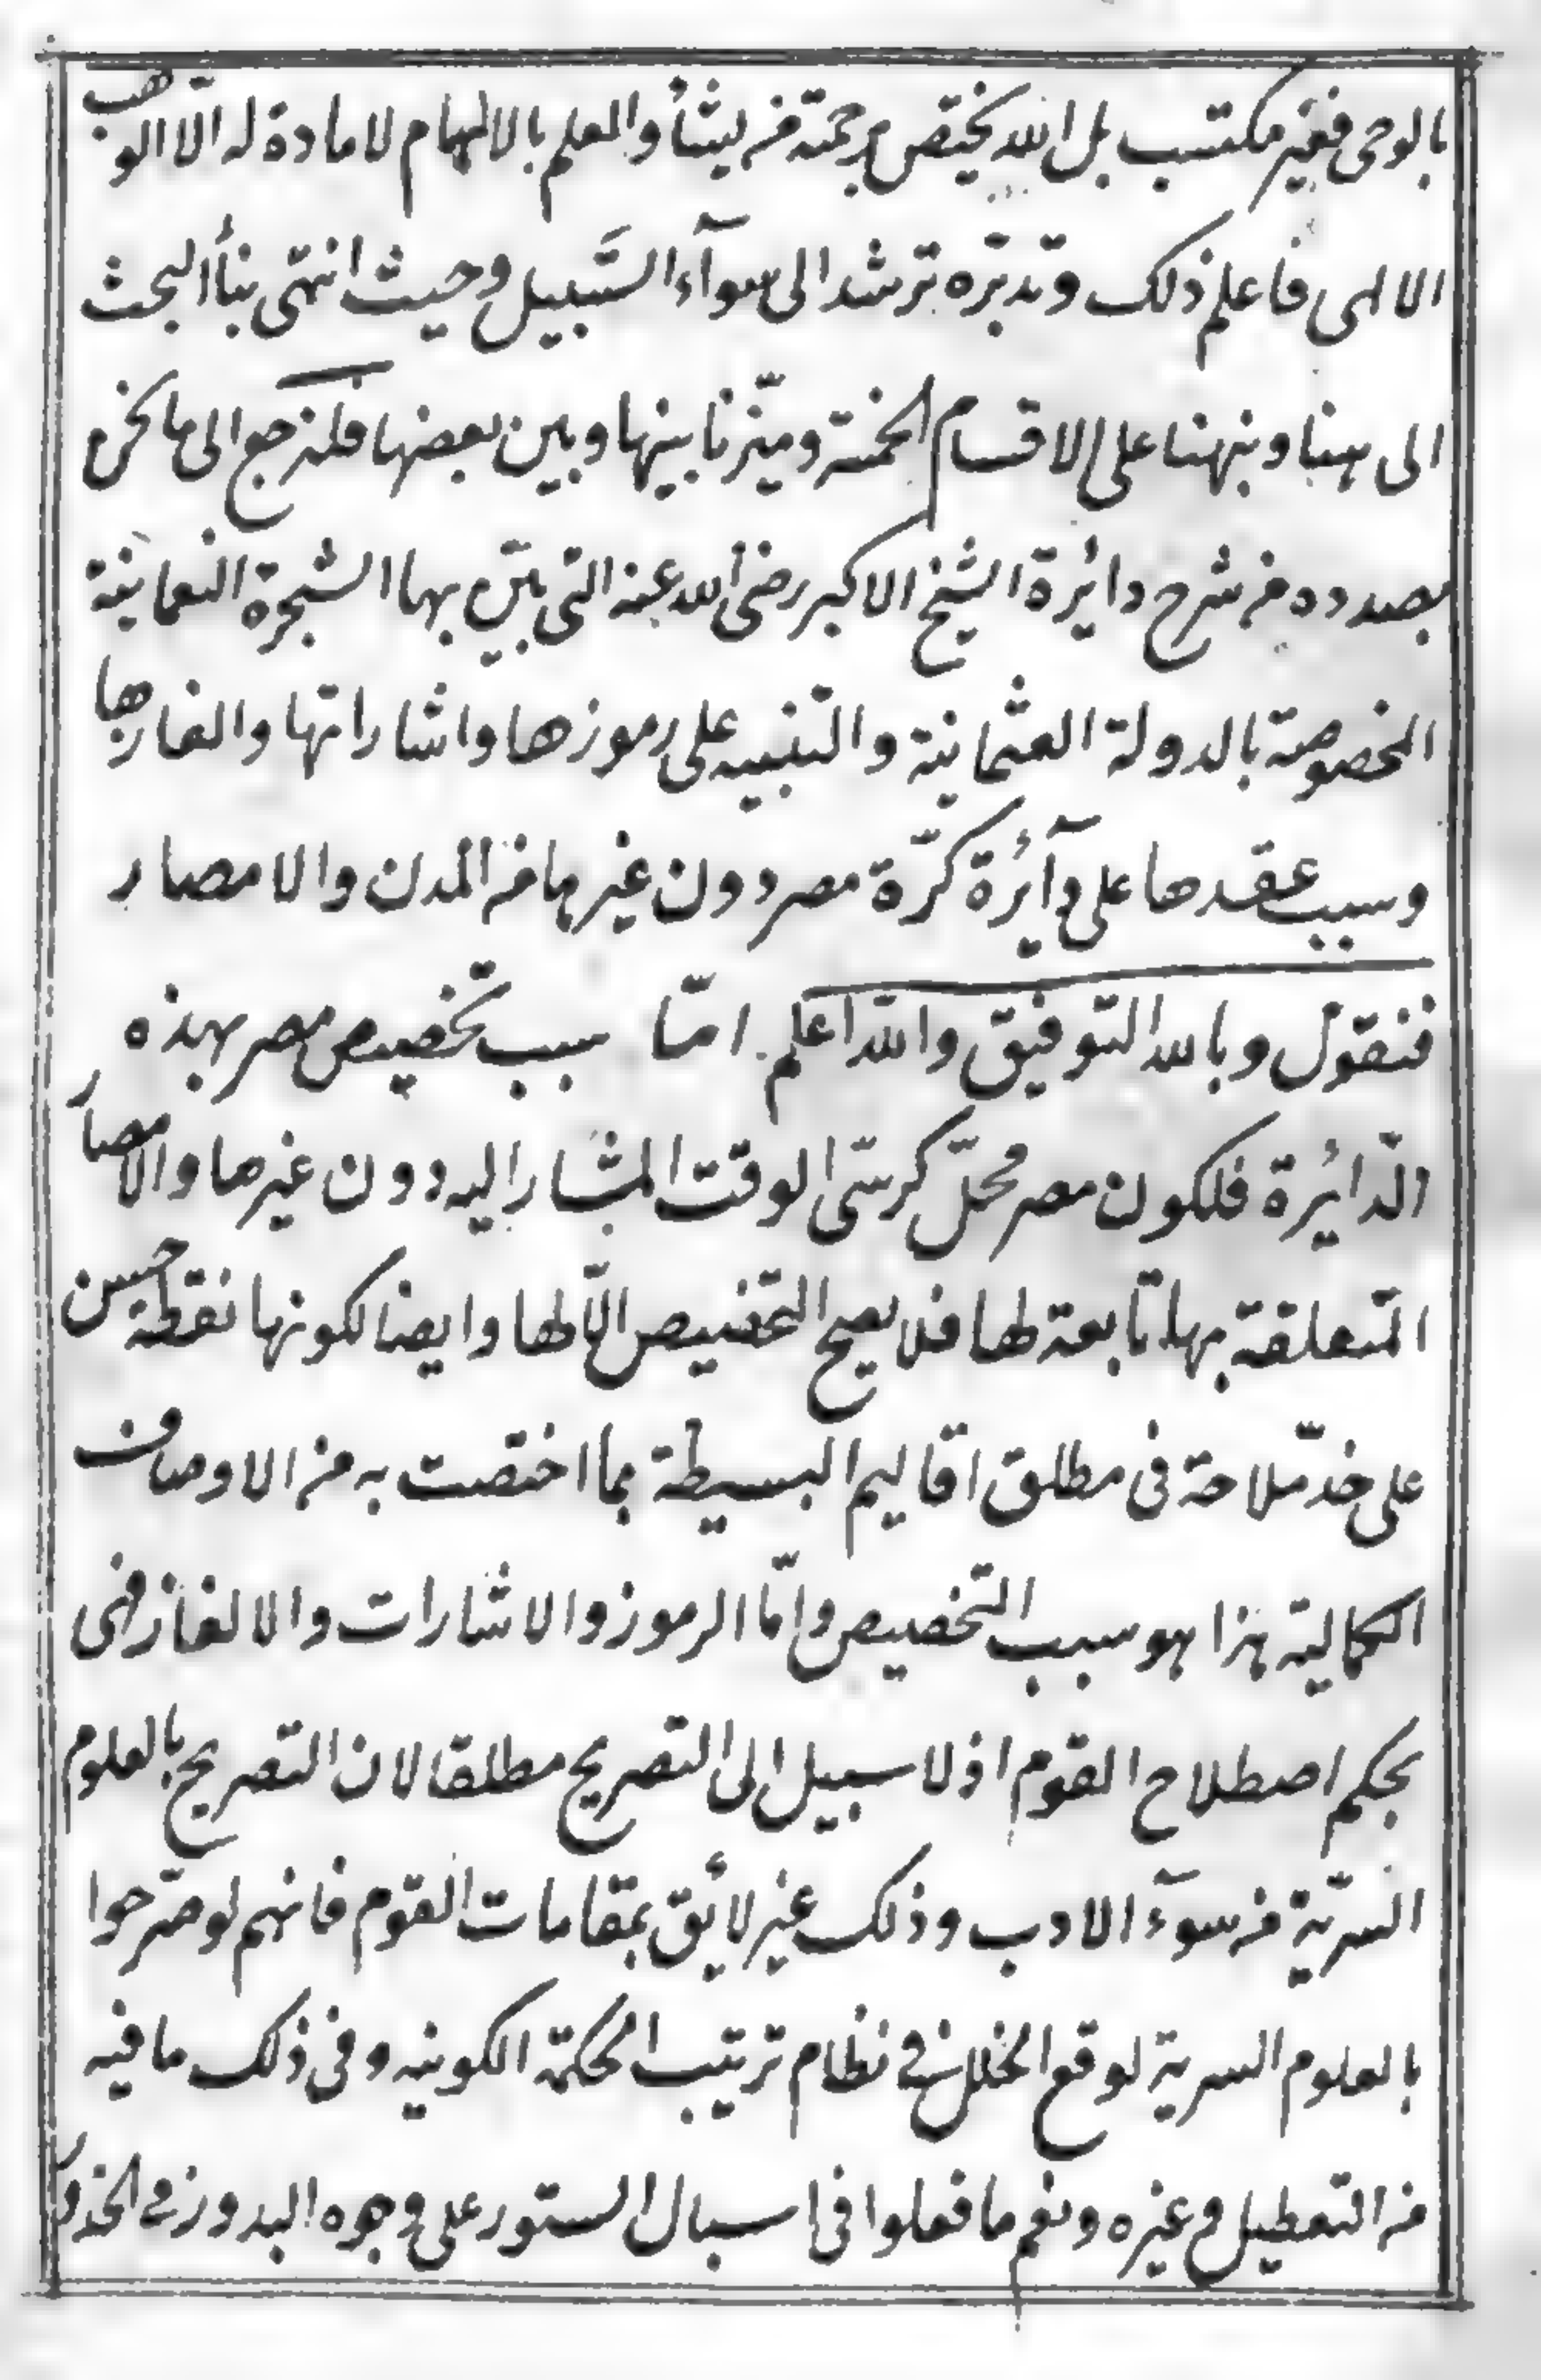 بالوحى فغير مكتسب بل الله يختص برحمته من يشأ والعلم بالالهام لا مادة له الّا الوهب
الالهى فاعلم ذلك وتدبّره ترشد الى سوآء السَّبيل وحيث انتهى بنا البحث
الى هنا ونبهنا على الاقسام الخمسة وميّزنا بينها وبين بعضها فلنرجع الى ما نحن
بصدده من شرح دائرة الشيخ الاكبر رضى الله عنه التى بيّن بها الشجرة النعمانية
المخصوصة بالدولة العثمانية والتنبيه على رموزها واشاراتها والغازها
وسبب عقدها على دآئرة كرّة مصر دون غيرها من المدن والامصار
فنقول وبالله التوفيق والله اعلم امّا سبب تخصيص مصر بهذه
الدّائرة فلكون مصر محلّ كرسّى الوقت المشار اليه دون غيرها والامصار
المتعلقة بها تابعة لها فلا يصح التخصيص الّا لها وايضا لكونها نقطة حسن
على خدّ ملاحة فى مطلق اقاليم البسيطة بما اختصت به من الاوصاف
الكمالية هذا هو سبب التخصيص وامّا الرموز والاشارات والالغاز فهى
بحكم اصطلاح القوم اذ لا سبيل الى التصريح مطلقا لان التصريح بالعلوم
السرّية من سوآء الادب وذلك غير لائق بمقامات القوم فانهم لو صرّحوا
بالعلوم السرية لوقع الخلل فى نظام ترتيب الحكمة الكونيه وفى ذلك ما فيه
من التعطيل وغيره ونعم ما فعلوا فى اسبال الستور على وجوه البدور فى الخدور